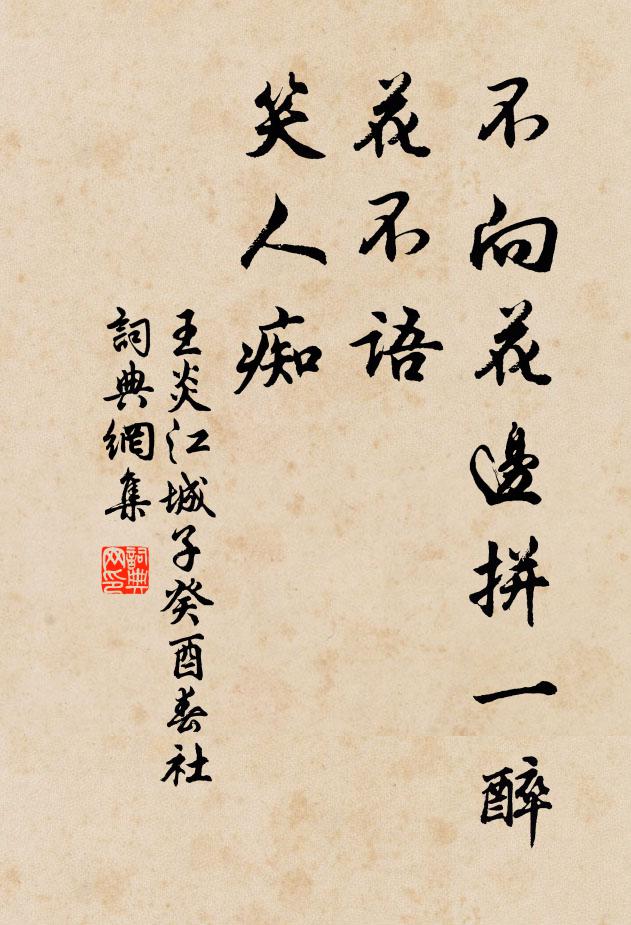 不向花邊拼一醉
花不語
笑人痴
王炎江城子癸酉春社
詞典網集
詞典網印